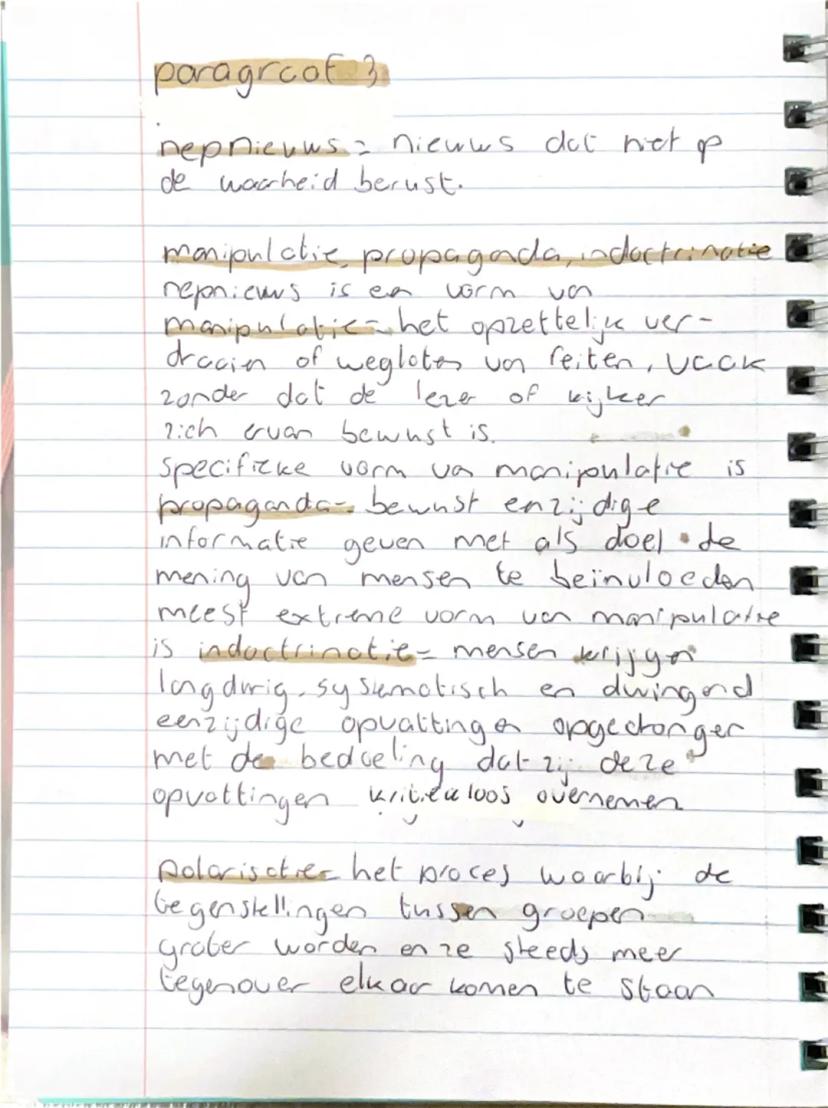 paragraaf 3
nepnieuws = nieuws dat niet op
de waarheid berust.
manipulatie, propaganda, indoctrinatie
nepnieuws is een vorm van
manipulatie = het opzettelijk ver-
draaien of weglaten van feiten, vaak
zonder dat de lezer of kijker
zich ervan bewust is.
specifieke vorm van manipulatie is
propaganda = bewust eenzijdige
informatie geven met als doel de
mening van mensen te beïnvloeden
meest extreme vorm van manipulatie
is indoctrinatie = mensen krijgen
langdurig, systematisch en dwingend
eenzijdige opvattingen opgedrongen
met de bedoeling dat zij deze
opvattingen kritiekloos overnemen
polarisatie = het proces waarbij de
tegenstellingen tussen groepen
groter worden en ze steeds meer
tegenover elkaar komen te staan